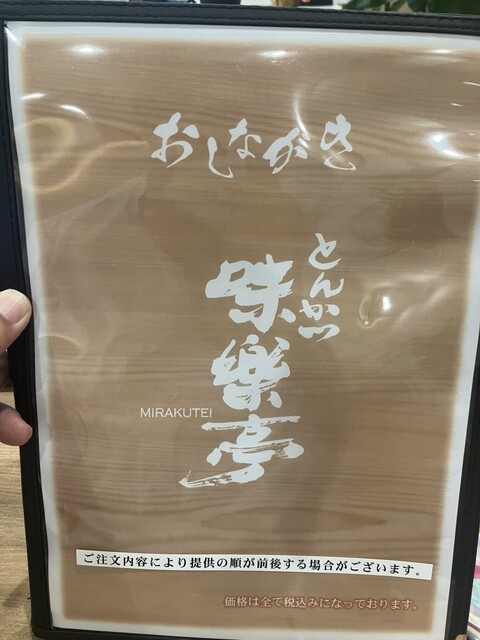 おしながき
とんかつ
味樂亭
MIRAKUTEI
ご注文内容により提供の順が前後する場合がございます。
価格は全て税込みになっております。